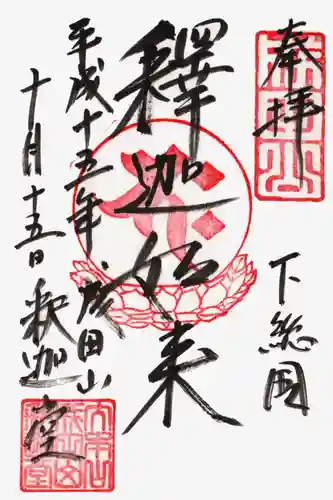 奉拝
下総国
釋迦如来
平成十五年
成田山
十月十五日
釈迦堂